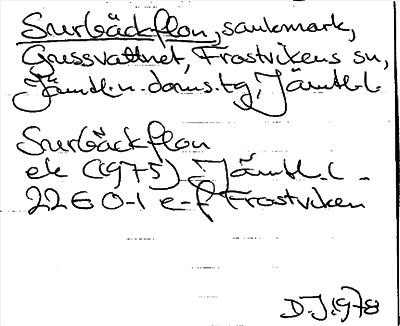 Surbäckflon, sankmark,
Gussvattnet, Frostvikens sn,
Jämtl:n.doms.tg, Jämtl.l
Surbäckflon
ek (1975) Jämtl.l -
22E 0-1 e-f Frostviken
D.J.1978